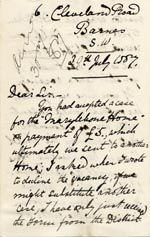 6. Cleveland Road
Barnes
S.W
20th July 1887.
Dear Sir -
You had accepted a case
for the Marylebone Home
on payment of £5, which
ultimately we sent to another
Home; I asked when I wrote
to decline the vacancy, if we
might substitute another
case. I have only just received
the form from the District